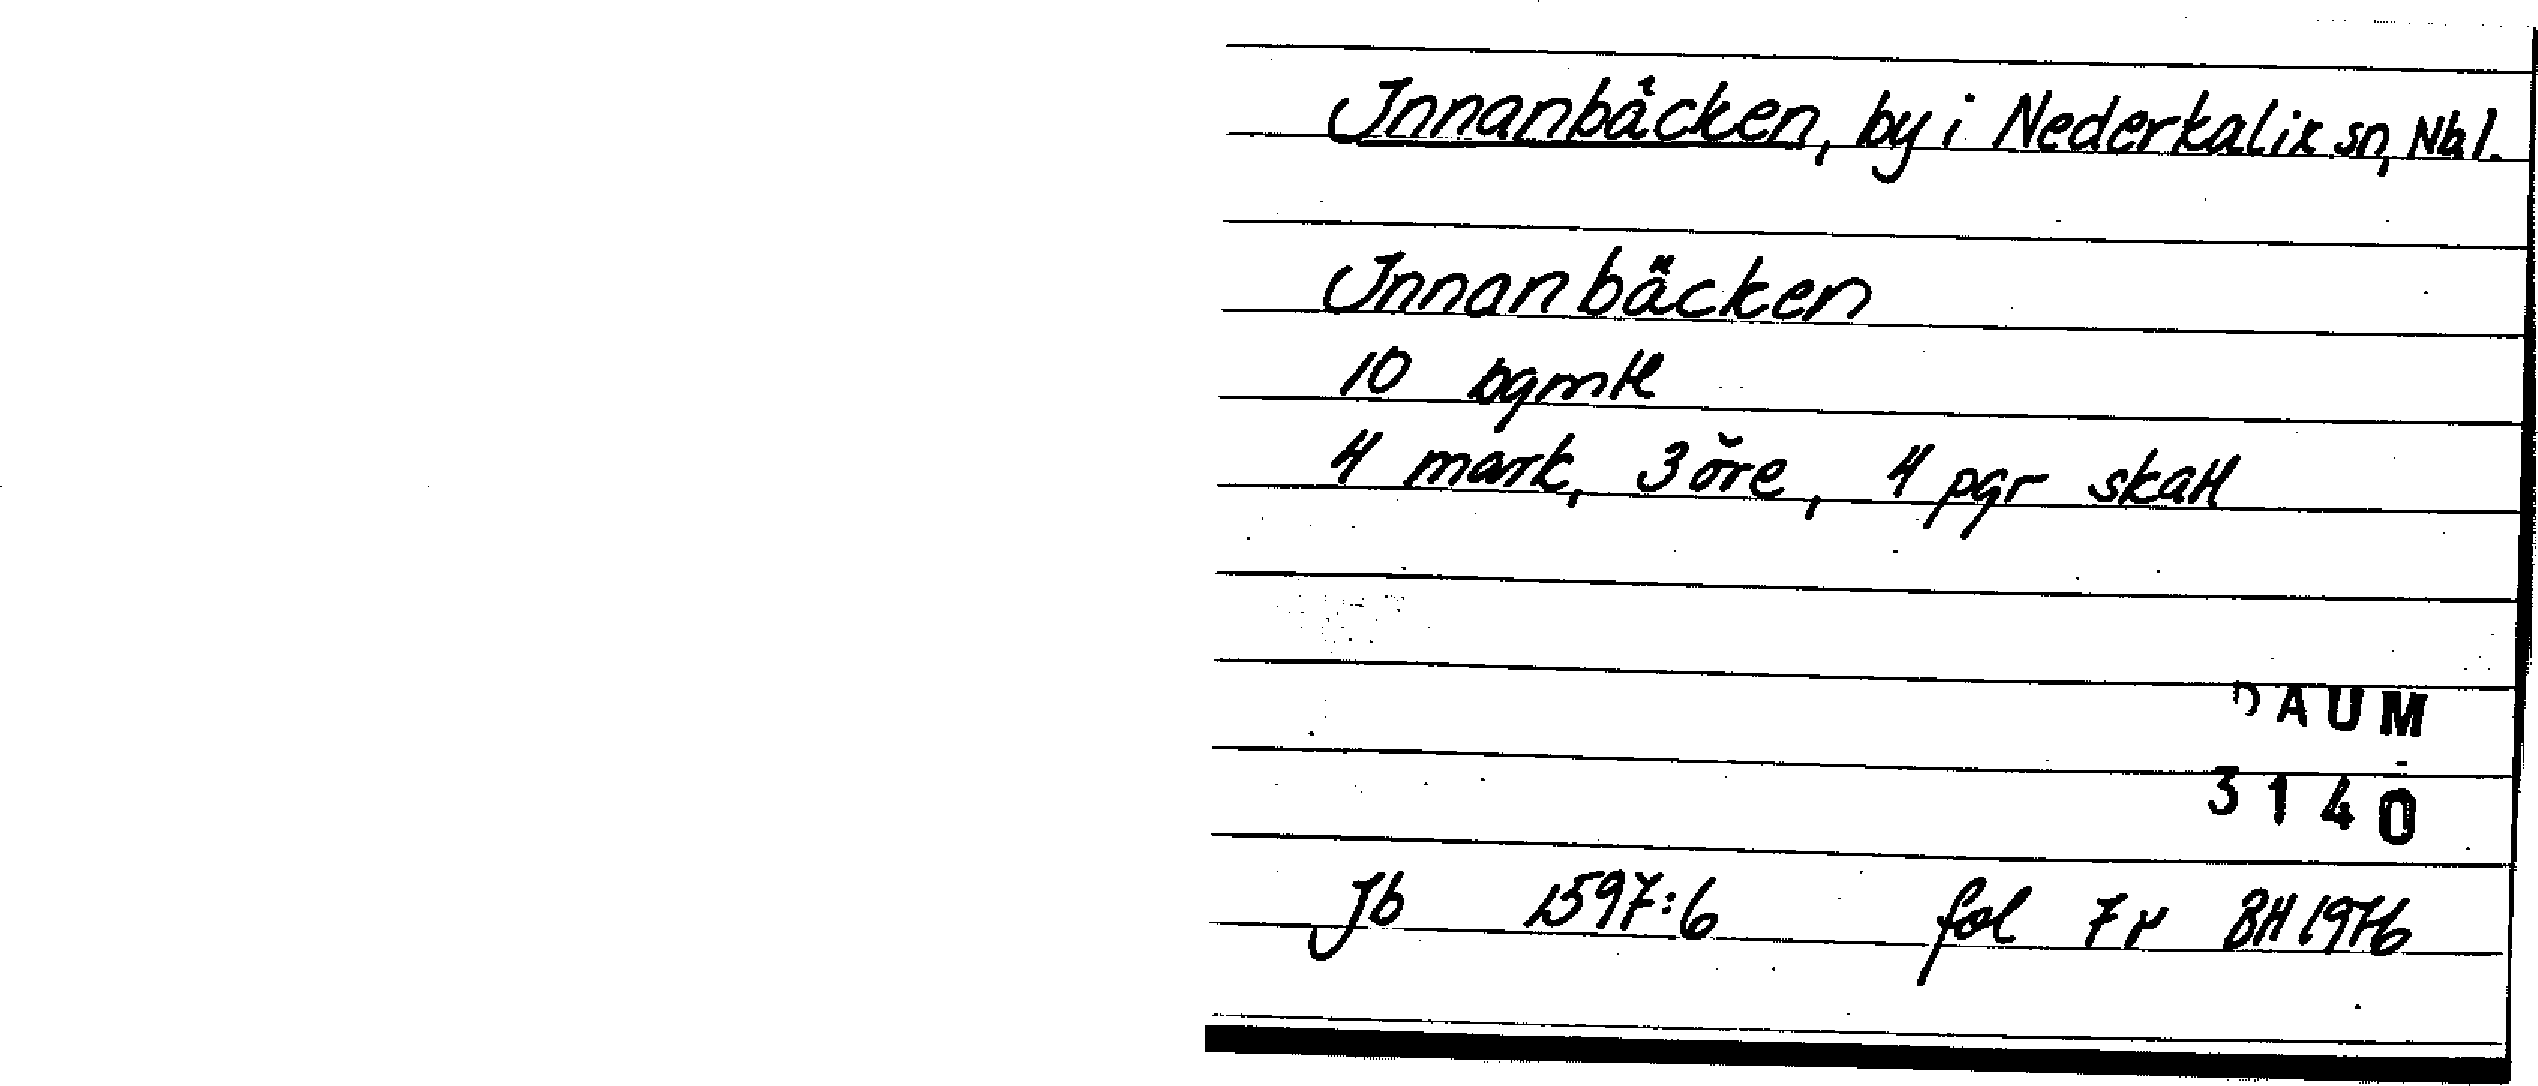 Innanbäcken, by i Nederkalix sn, Nbl.
Innanbäcken
10 bgmtl
4 mark, 3 öre, 4 pgr skatt
DAUM
3140
Jb 1597:6 fol 7r BH 1976